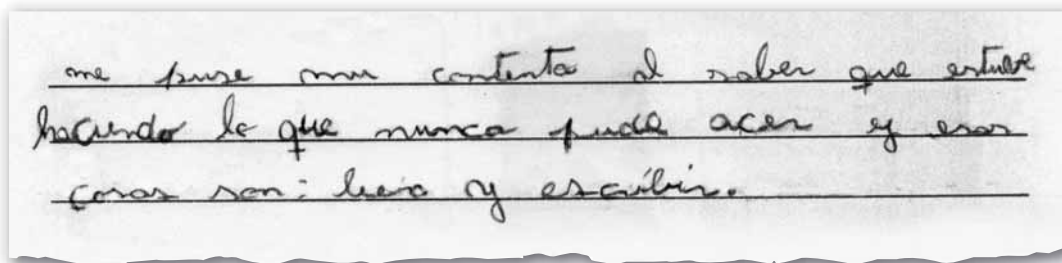 me puse mu contenta al saber que estube
haciendo lo que nunca pude acer y esas
cosas son: leer y escribir.